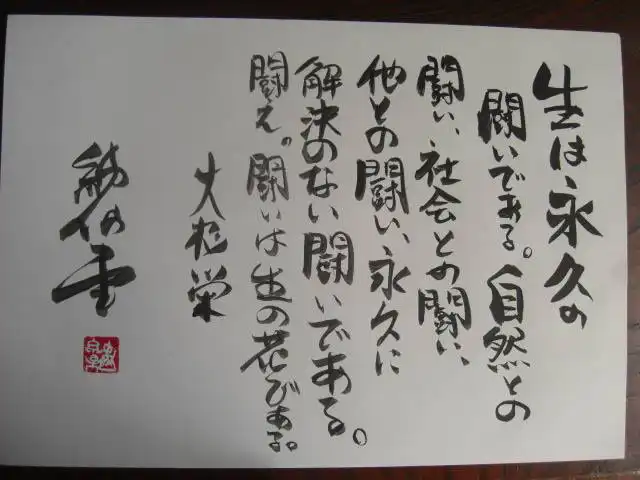 生は永久の
闘いである。自然との
闘い、社会との闘い、
他との闘い、永久に
解決のない闘いである。
闘え。闘いは生の花である。
大杉栄